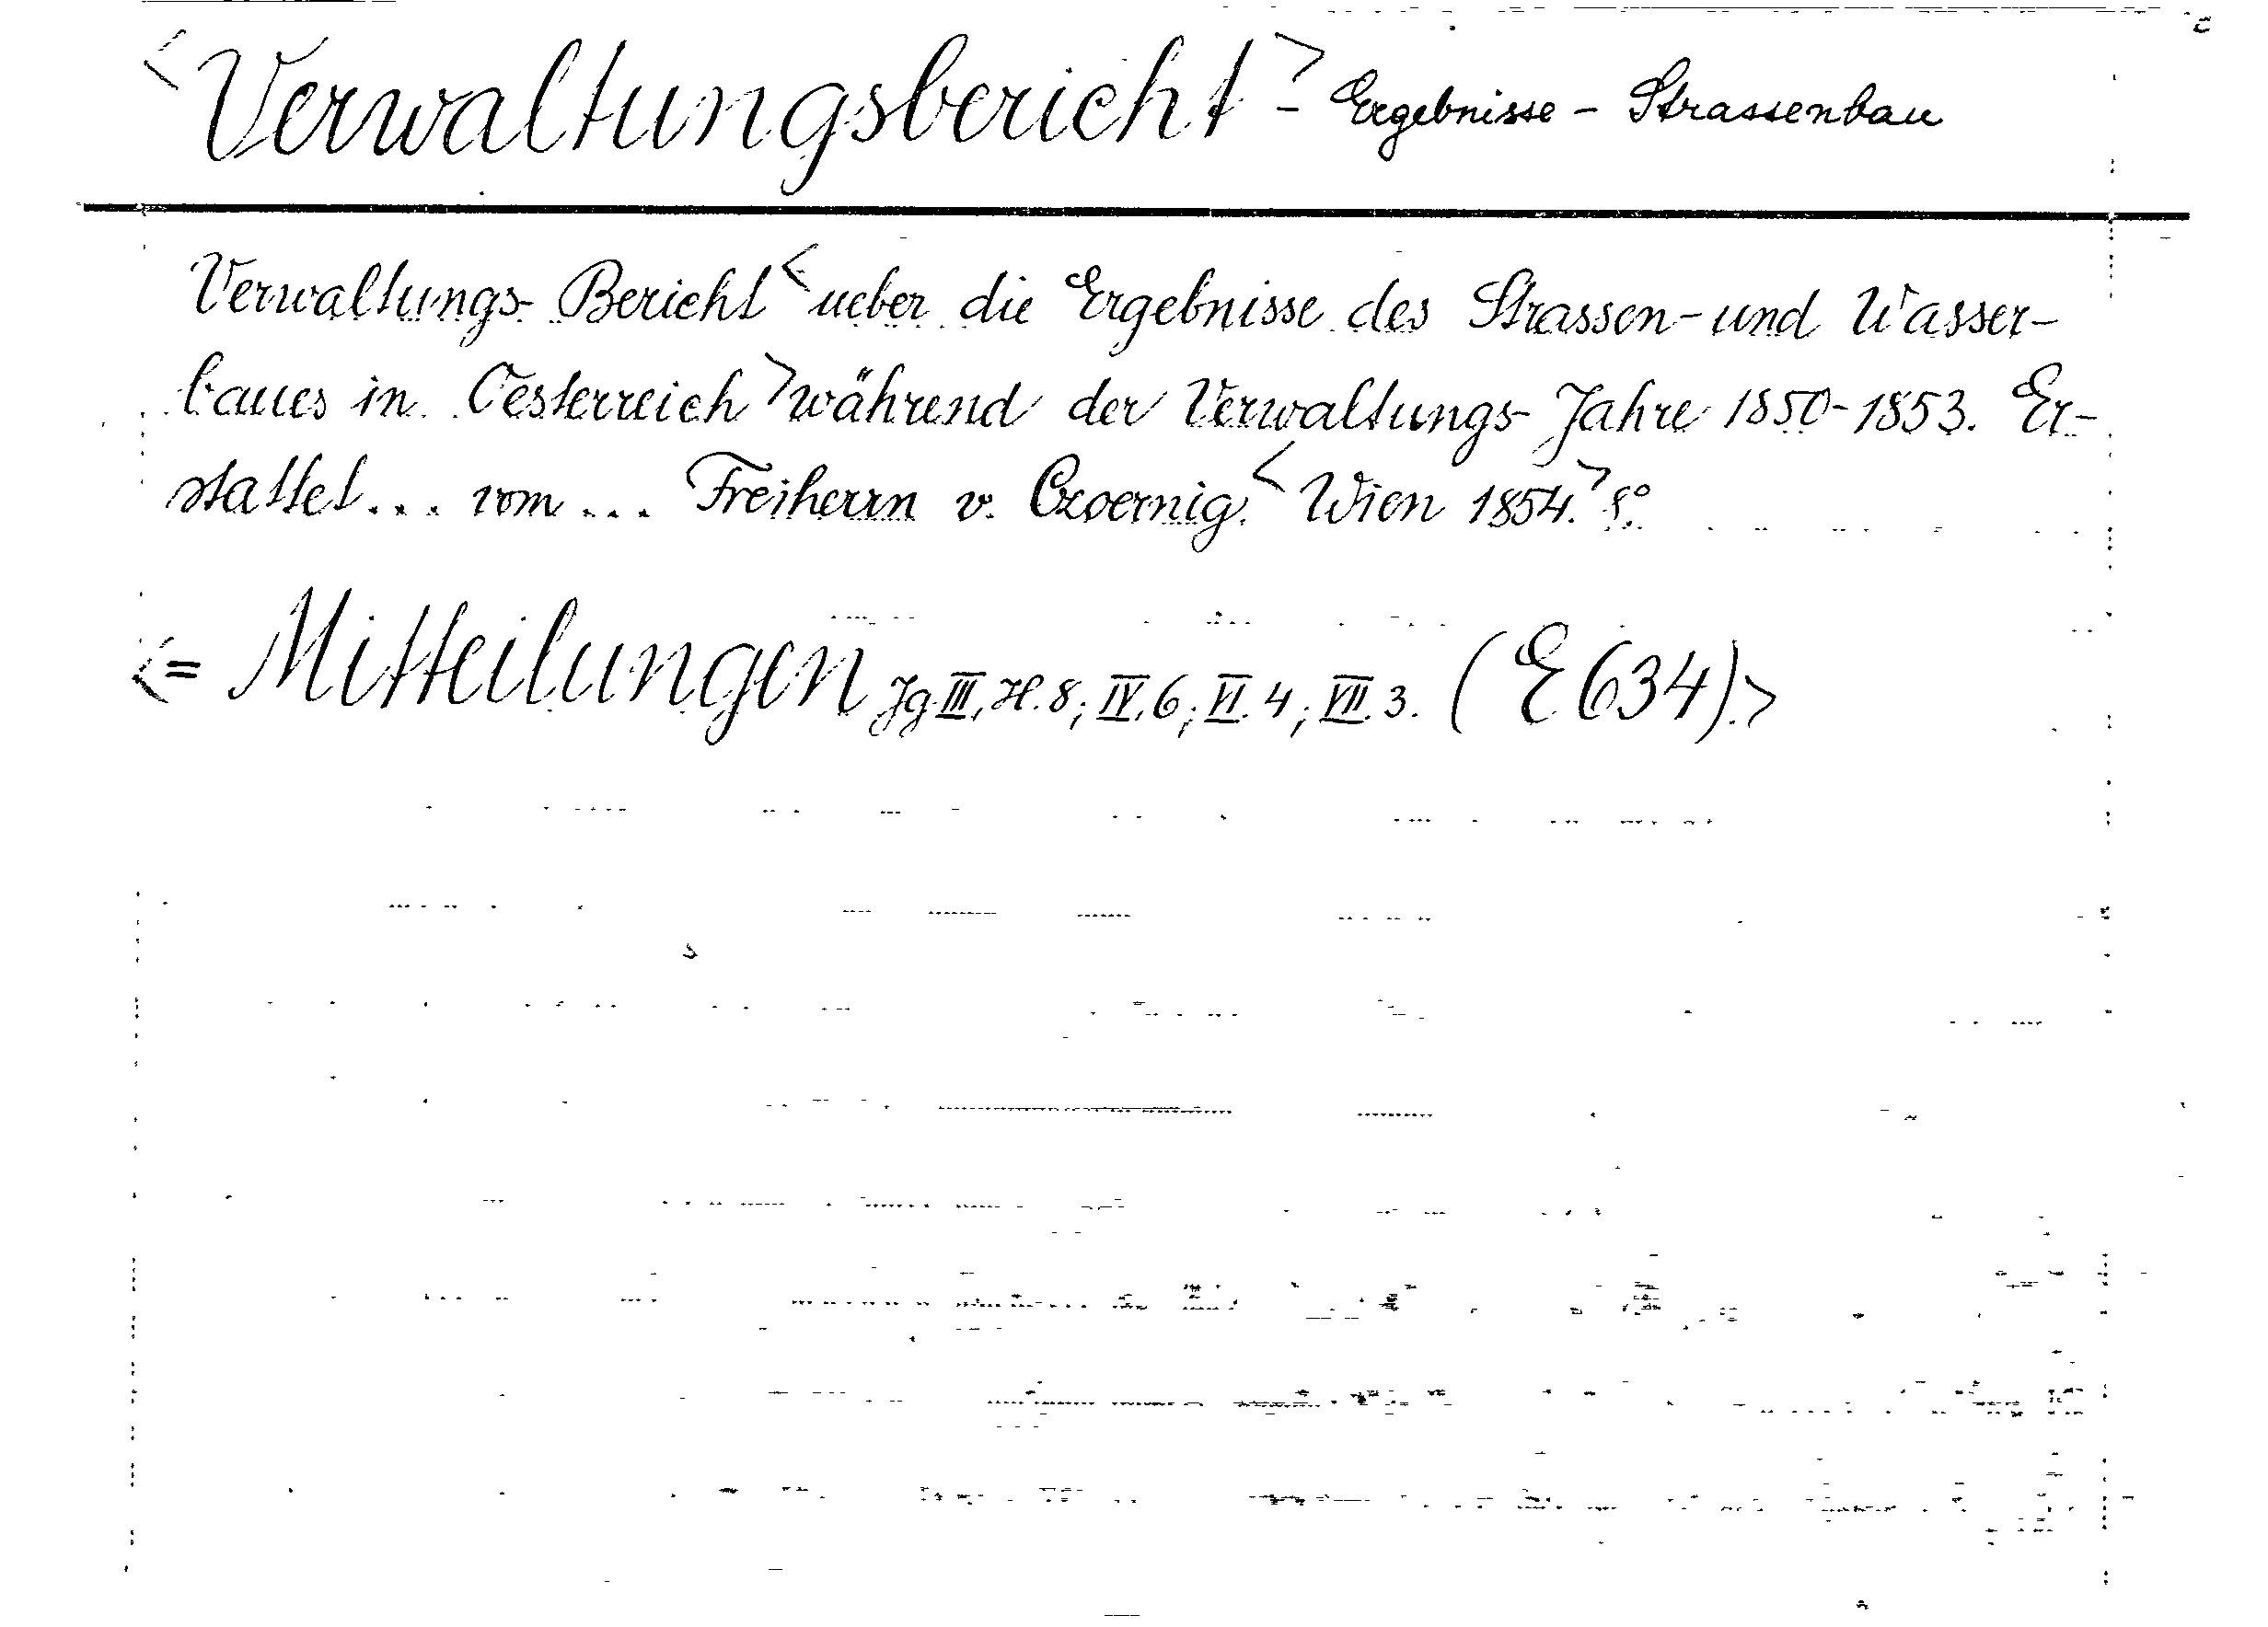 <Verwaltungsbericht> - Ergebnisse - Strassenbau
Verwaltungs-Bericht <ueber die Ergebnisse des Strassen- und Wasser-
baues in Oesterreich> während der Verwaltungs-Jahre 1850-1853. Er-
stattet... vom... Freiherrn v. Czoernig. <Wien 1854.> 8°.
<= Mitteilungen Jg. III, H. 8; IV, 6; VI. 4; VII. 3. (E 634).>